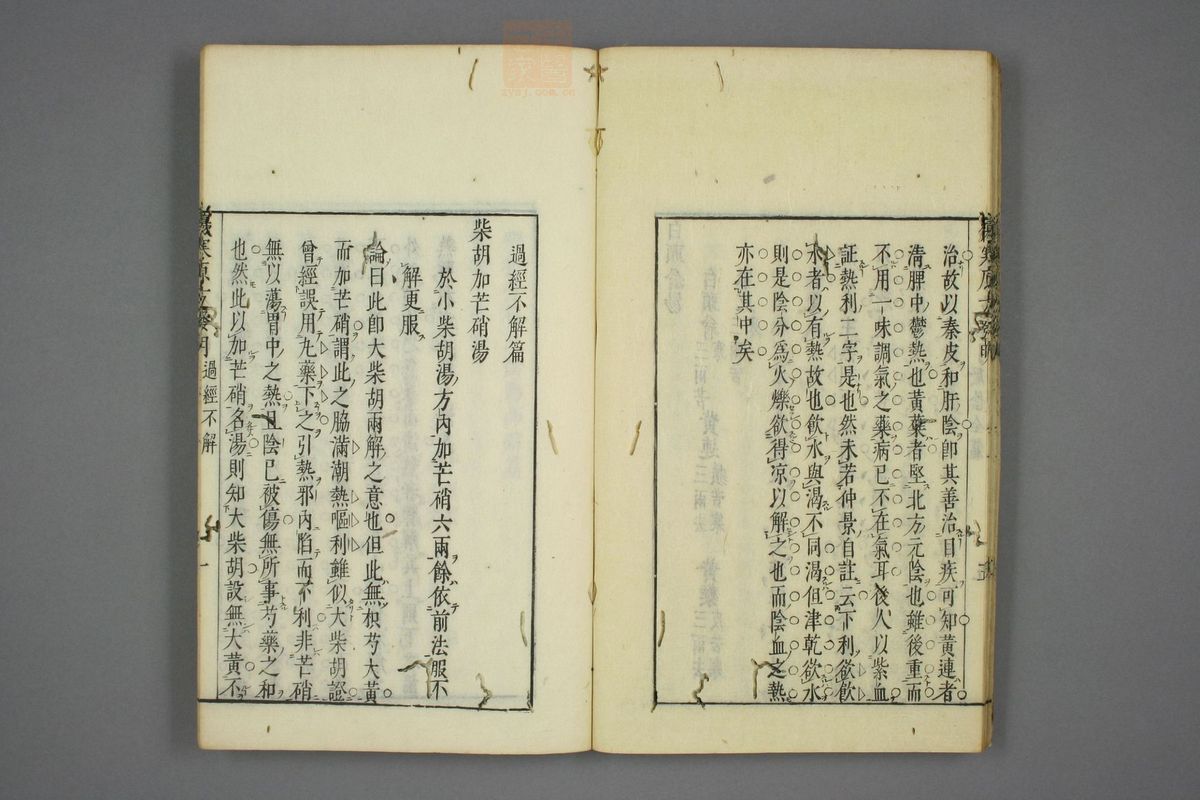 治故以秦皮和肝陰卽其善治目疾可知黃連者
淸脾中鬱熱也黃蘗者堅北方元陰也雖後重而
不用一味調氣之藥病已不在氣耳後人以紫血
証熱利二字是也然未若仲景自註云下利欲飮
水者以有熱故也飮水與渴不同渴但津乾欲水
則是陰分爲火爍欲得凉以解之也而陰血之熱
亦在其中矣
過經不解篇
柴胡加芒硝湯
於小柴胡湯方內加芒硝六兩餘依前法服不
解更服
論曰此卽大柴胡兩解之意也但此無枳芍大黃
而加芒硝謂此之脇滿潮熱嘔利雖似大柴胡證
曾經誤用丸藥下之引熱邪內陷而下利非芒硝
無以蕩胃中之熱且陰已被傷無所事芍藥之和
也然此以加芒硝名湯則知大柴胡設無大黃不
過經不解
一
zysj.com.cn